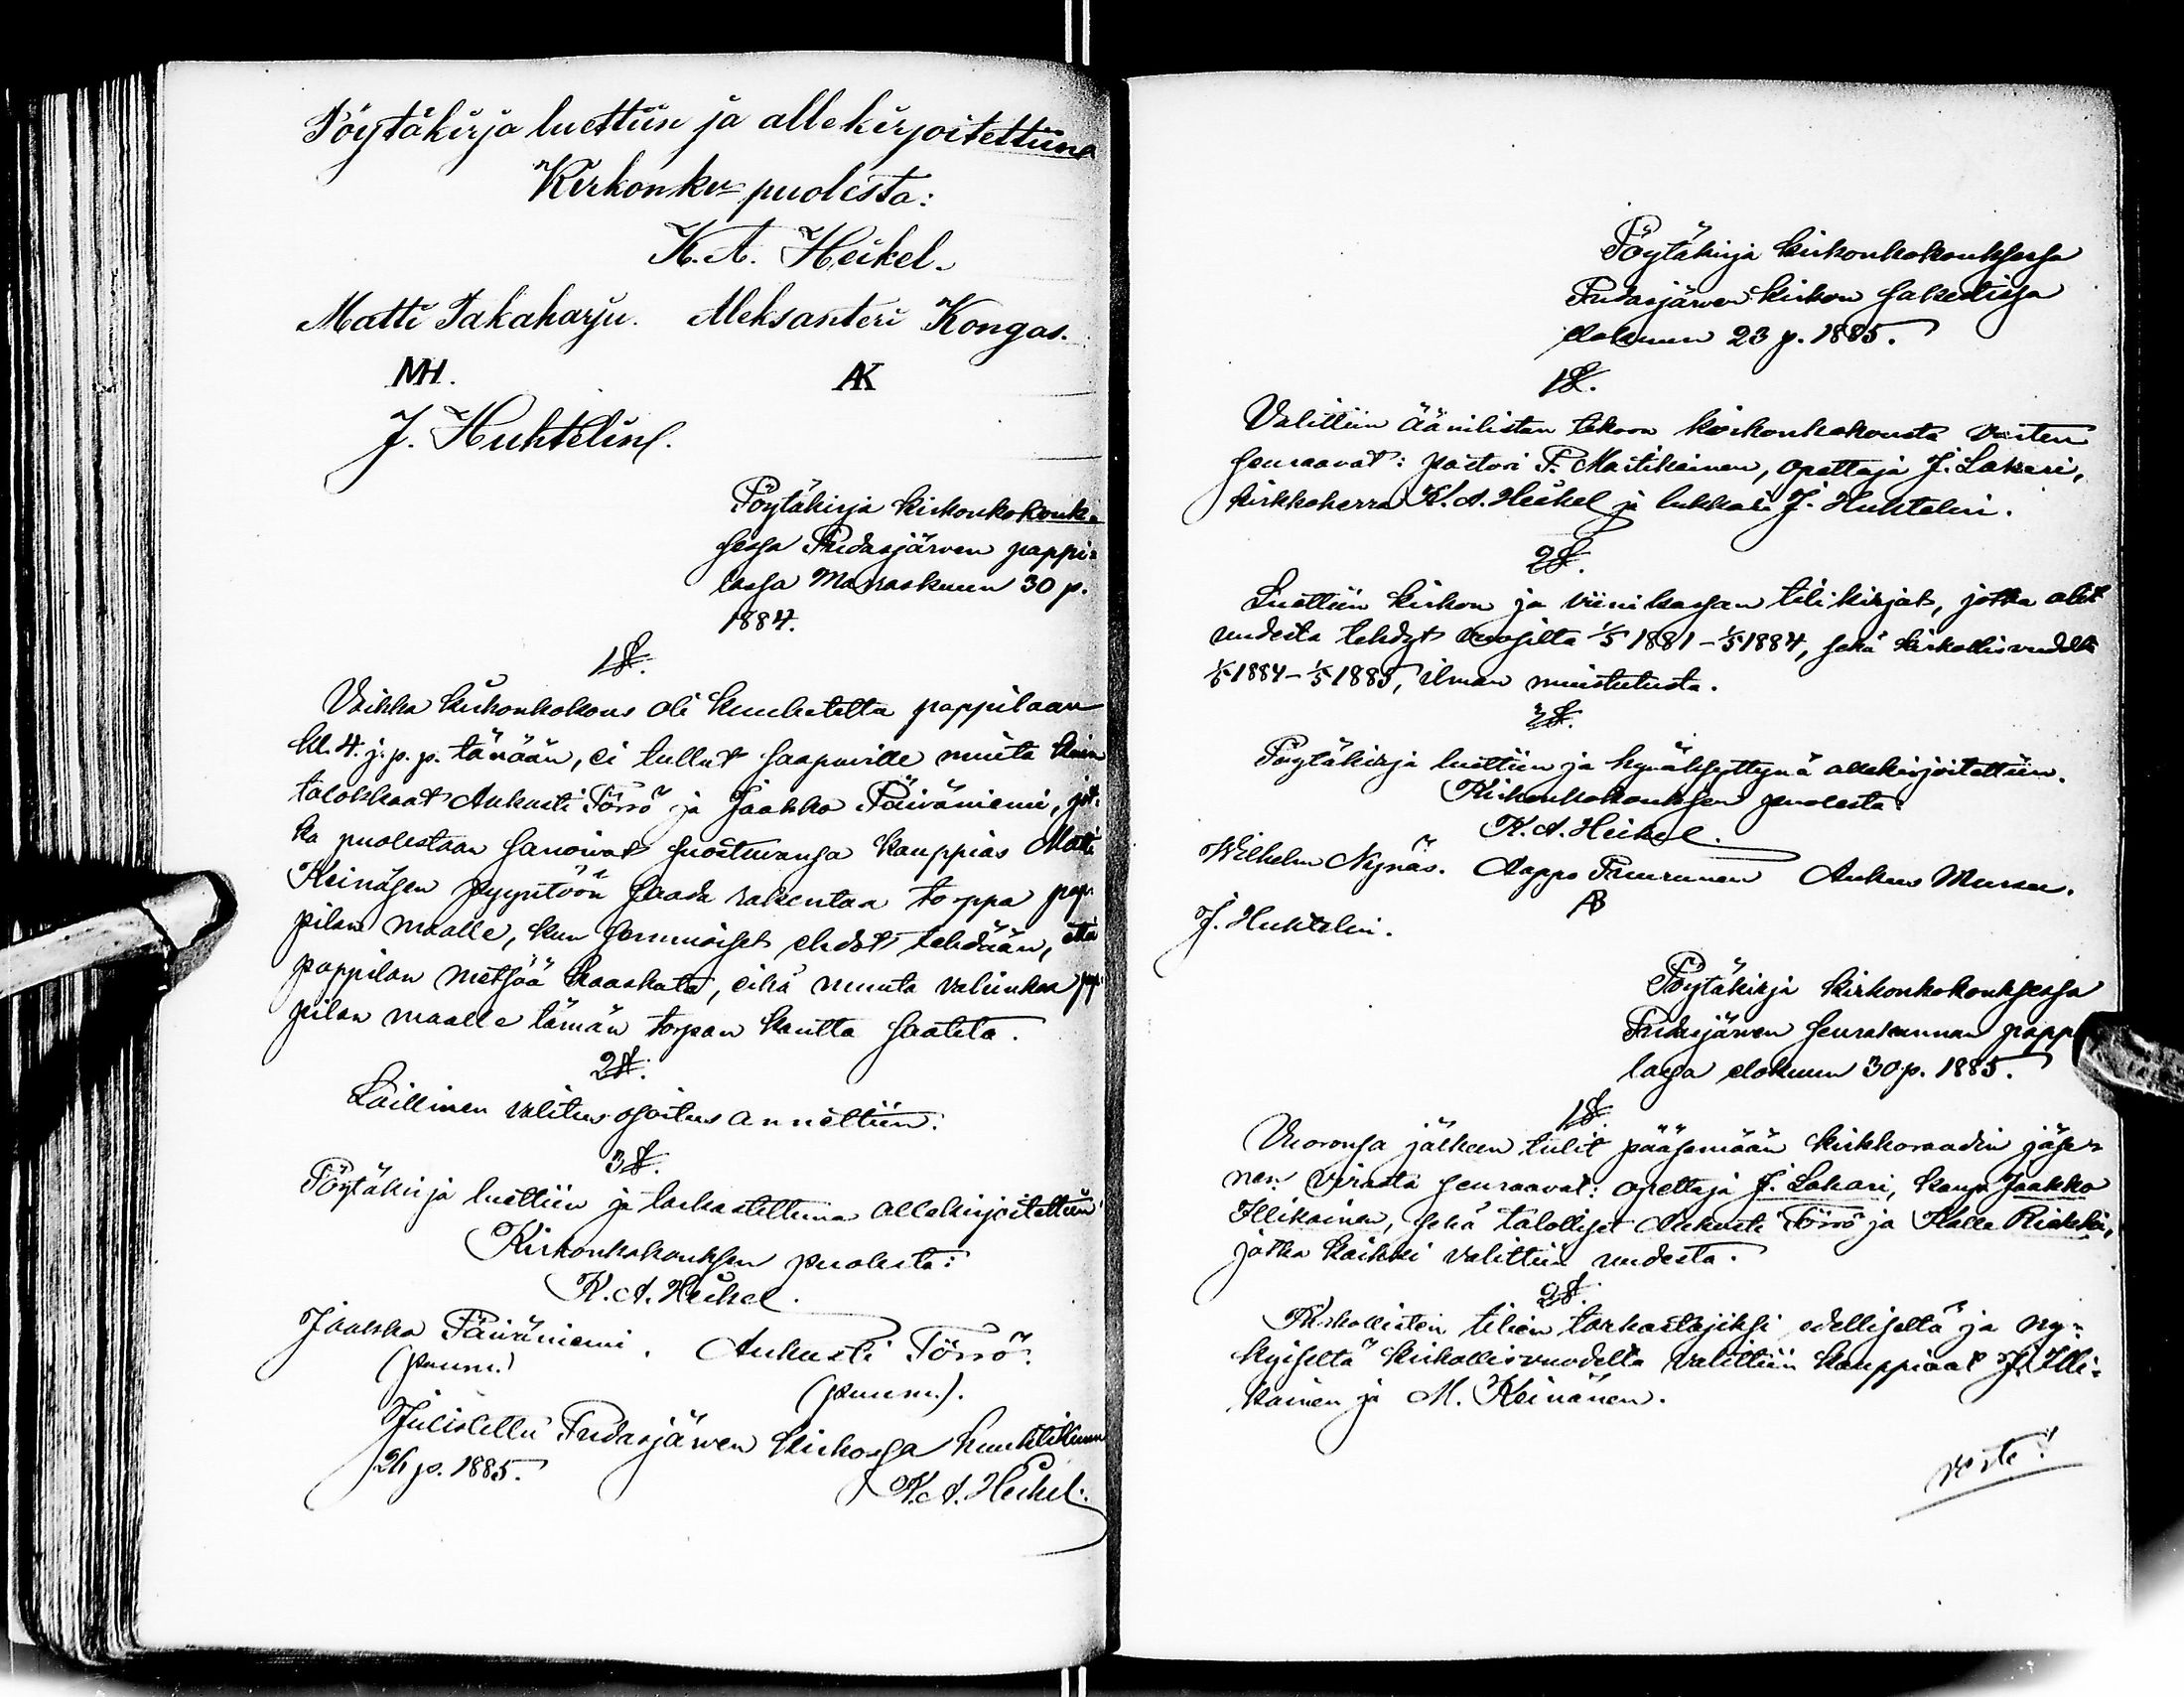 Pöytäkirja luettiin ja allekirjoitettiin
Kirkonkok= puolesta:
K. A. Heikel.
Matti Takaharju. Aleksanteri Kongas.
MH. AK
J. Huhtelin.
Pöytäkirja kirkonkokouk=
sessa Pudasjärven pappi=
lassa Marraskuun 30 p.
1884.
1 §.
Vaikka kirkonkokous oli kuulutettu pappilaan
kl. 4. j. p. p. tänään, ei tullut saapuville muita kuin
talokkaat Aukusti Törrö ja Jaakko Päiväniemi, jot-
ka puolestaan sanoivat suostuvansa kauppias Matti
Keinäsen pyyntöön saada rakentaa torppa pap-
pilan maalle, kun semmoiset ehdot tehdään, että
pappilan metsää haaskata, eikä muuta vahinkoa pap-
pilan maalle tämän torpan kautta saateta.
2 §.
Laillinen valitus-osoitus annettiin.
3 §.
Pöytäkirja luettiin ja tarkastettuna allekirjoitettiin
Kirkonkokouksen puolesta:
K. A. Heikel.
Jaakko Päiväniemi. Aukusti Törrö.
(puum.) (puum.).
Julistettu Pudasjärven kirkossa huhtikuun
26 p. 1885.
K. A. Heikel.
Pöytäkirja kirkonkokouksessa
Pudasjärven kirkon sakestissa
elokuun 23 p. 1885.
1 §.
Valittiin äänilistan tekoon kirkonkokousta varten
seuraavat: pastori P. Mastikainen, opettaja J. Lakari,
kirkkoherra K. A. Heikel ja lukkari J. Huhtelin.
2 §.
Luettiin kirkon ja viinikassan tilikirjat, jotka olit
uudesta tehdyt vuosilta 1/5 1881 – 1/5 1884, sekä kirkollisvuodelta
1/5 1884 – 1/5 1885, ilman muistutusta.
3 §.
Pöytäkirja luettiin ja hyväksyttynä allekirjoitettiin.
Kirkonkokouksen puolesta:
K. A. Heikel.
Wilhelm Nynäs. Aappo Puurunen Aukus
AB
J. Huhtelin.
Pöytäkirja kirkonkokouksessa
Pudasjärven seurakunnan pappi
lassa elokuun 30 p. 1885.
1 §.
Vuoronsa jälkeen tulit pääsemään kirkkoraadin jäse=
nen virasta seuraavat: opettaja J. Lakari, kaup. Jaakko
Illikainen, sekä talolliset Aukusti Törrö ja Kalle Riekki,
jotka kaikki valittiin uudesta.
2 §.
Kirkollisten tilien tarkastajiksi edelliseltä ja ny=
kyiseltä kirkollisvuodelta valittiin kauppiaat J. Illi=
kainen ja M. Keinänen.